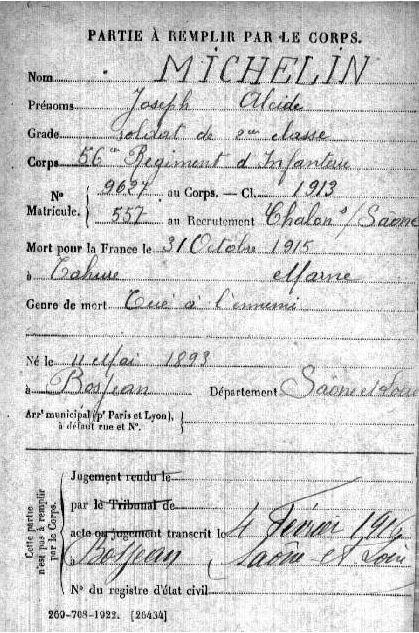 PARTIE À REMPLIR PAR LE CORPS.
Nom MICHELIN
Prénoms Joseph Alcide
Grade Soldat de 2me classe
Corps 56me Régiment d'Infanterie
N° Matricule. 9627 au Corps. — Cl. 1913
557 au Recrutement Chalon s/Saône
Mort pour la France le 31 Octobre 1915
à Tahure Marne
Genre de mort Tué à l'ennemi
Né le 11 Mai 1893
à Bosjean Département Saône et Loire
Arrt municipal (pr Paris et Lyon), à défaut rue et N°.
Cette partie n'est pas à remplir par le Corps.
Jugement rendu le
par le Tribunal de
acte ou jugement transcrit le 4 Février 1916
à Bosjean Saône et Loire
N° du registre d'état civil
269-708-1922. [26434]